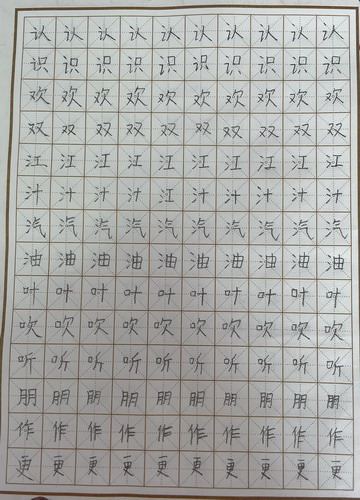 认认认认认认认认认认
识识识识识识识识识识
欢欢欢欢欢欢欢欢欢欢
双双双双双双双双双双
江江江江江江江江江江
汁汁汁汁江汁汁汁汁汁
汽汽汽汽汽汽汽汽汽汽
油油油油油油油油油油
叶叶叶叶叶叶叶叶叶叶
吹吹吹吹吹吹吹吹吹吹
听听听听听听听听听听
朋朋朋朋朋朋朋朋朋朋
作作作作作作作作作作
更更更更更更更更更更